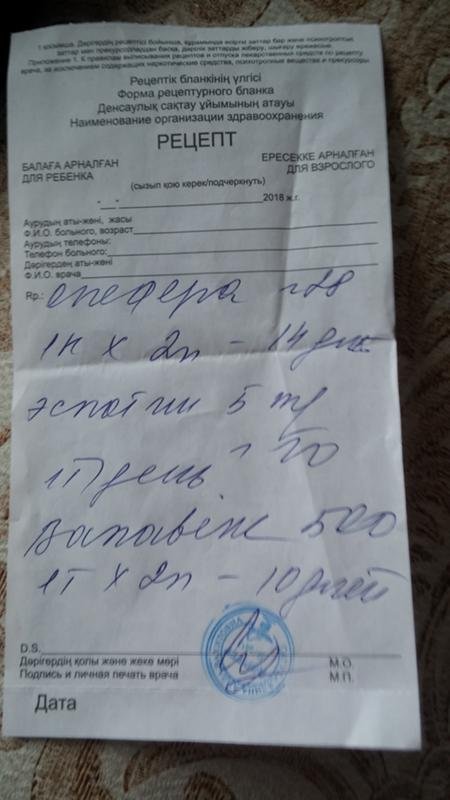 1 қосымша. Дәрігердің рецептісі бойынша, құрамында есірткі заттар бар және психотроптық
заттар мен прекурсорлардан басқа, дәрілік заттарды жіберу, шығару ережесіне.
Приложение 1. К правилам выписывания рецептов и отпуска лекарственных средств по рецепту
врача, за исключением содержащих наркотические средства, психотропные вещества и прекурсоры
Рецептік бланкінің үлгісі
Форма рецептурного бланка
Денсаулық сақтау ұйымының атауы
Наименование организации здравоохранения
РЕЦЕПТ
БАЛАҒА АРНАЛҒАН ЕРЕСЕККЕ АРНАЛҒАН
ДЛЯ РЕБЕНКА ДЛЯ ВЗРОСЛОГО
(сызып қою керек/подчеркнуть)
2018 ж.г.
Аурудың аты-жөні, жасы
Ф.И.О. больного, возраст
Аурудың телефоны:
Телефон больного:
Дәрігердің аты-жөні
Ф.И.О. врача
Rp.: №28
1к х 2р - 14 дней
5
1т день
500
1т х 2р - 10 дней
D.S.
Дәрігердің қолы және жеке мөрі М.О.
Подпись и личная печать врача М.П.
Дата